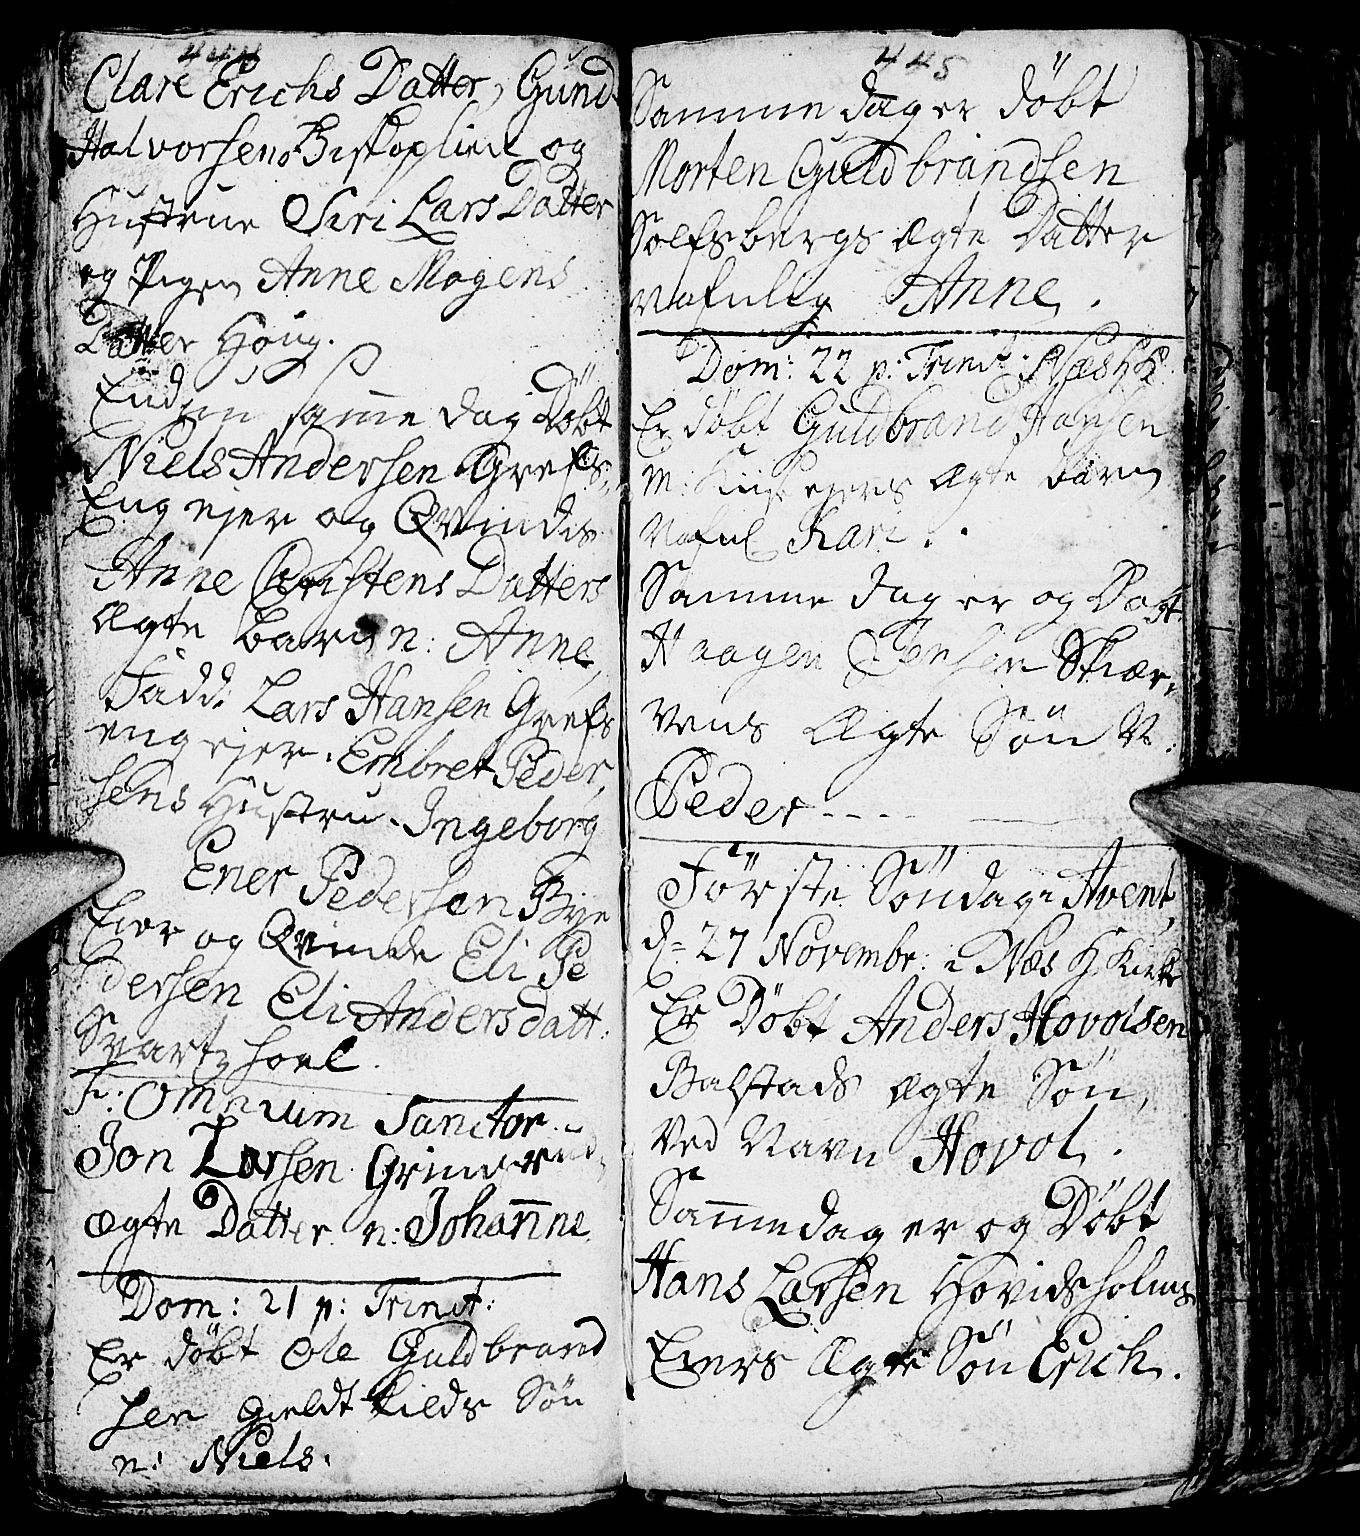 444
Clare Erichs Datter, Gund
Halvorsens Biskoplien og
Hustrue Siri Lars Datter
og Pigen Anne Mogens
Datter Høug.
End samme dag Døbt
Niels Andersen Grefs
Eng ejer og Qvindis
Anne Christens Datters
Ægte barn n: Anne
Fadd: Lars Hansen Grefs
eng ejer. Embret Peder,
sens Hustru. Ingeborg
Ener Pedersen Bye
Eier og Qvinde Eli Pe
dersen Eli Andersdatt:
Svartshoel.
F: Omnium Sanctor
Jon Larsen
ægte Datter n: Johanne
Dom: 21 p: Trinit:
Er døbt Ole Guldbrand
sen Gieldtkilds Søn
n: Niels.
445
Samme dag er døbt
Morten Guldbrandsen
Solfsbergs Ægte Datter
nafnlig Anne.
Dom: 22 p: Trinit:
Er døbt Guldbrand Hansen
Ægte barn
Nafnl Kari.
Samme dag er og Døbt
Haagen Jensen Skiær,
vens Ægte Søn N.
Peder....
Første Søndag i Avent,
d= 27 Novembr: i Næs H. Kirk
Er Døbt Anders Hovolsen
Balstads Ægte Søn,
Ved Navn Hovol.
Samme dag er og Døbt
Hans Larsen Hovidsholms
Eiers Ægte Søn Erich.